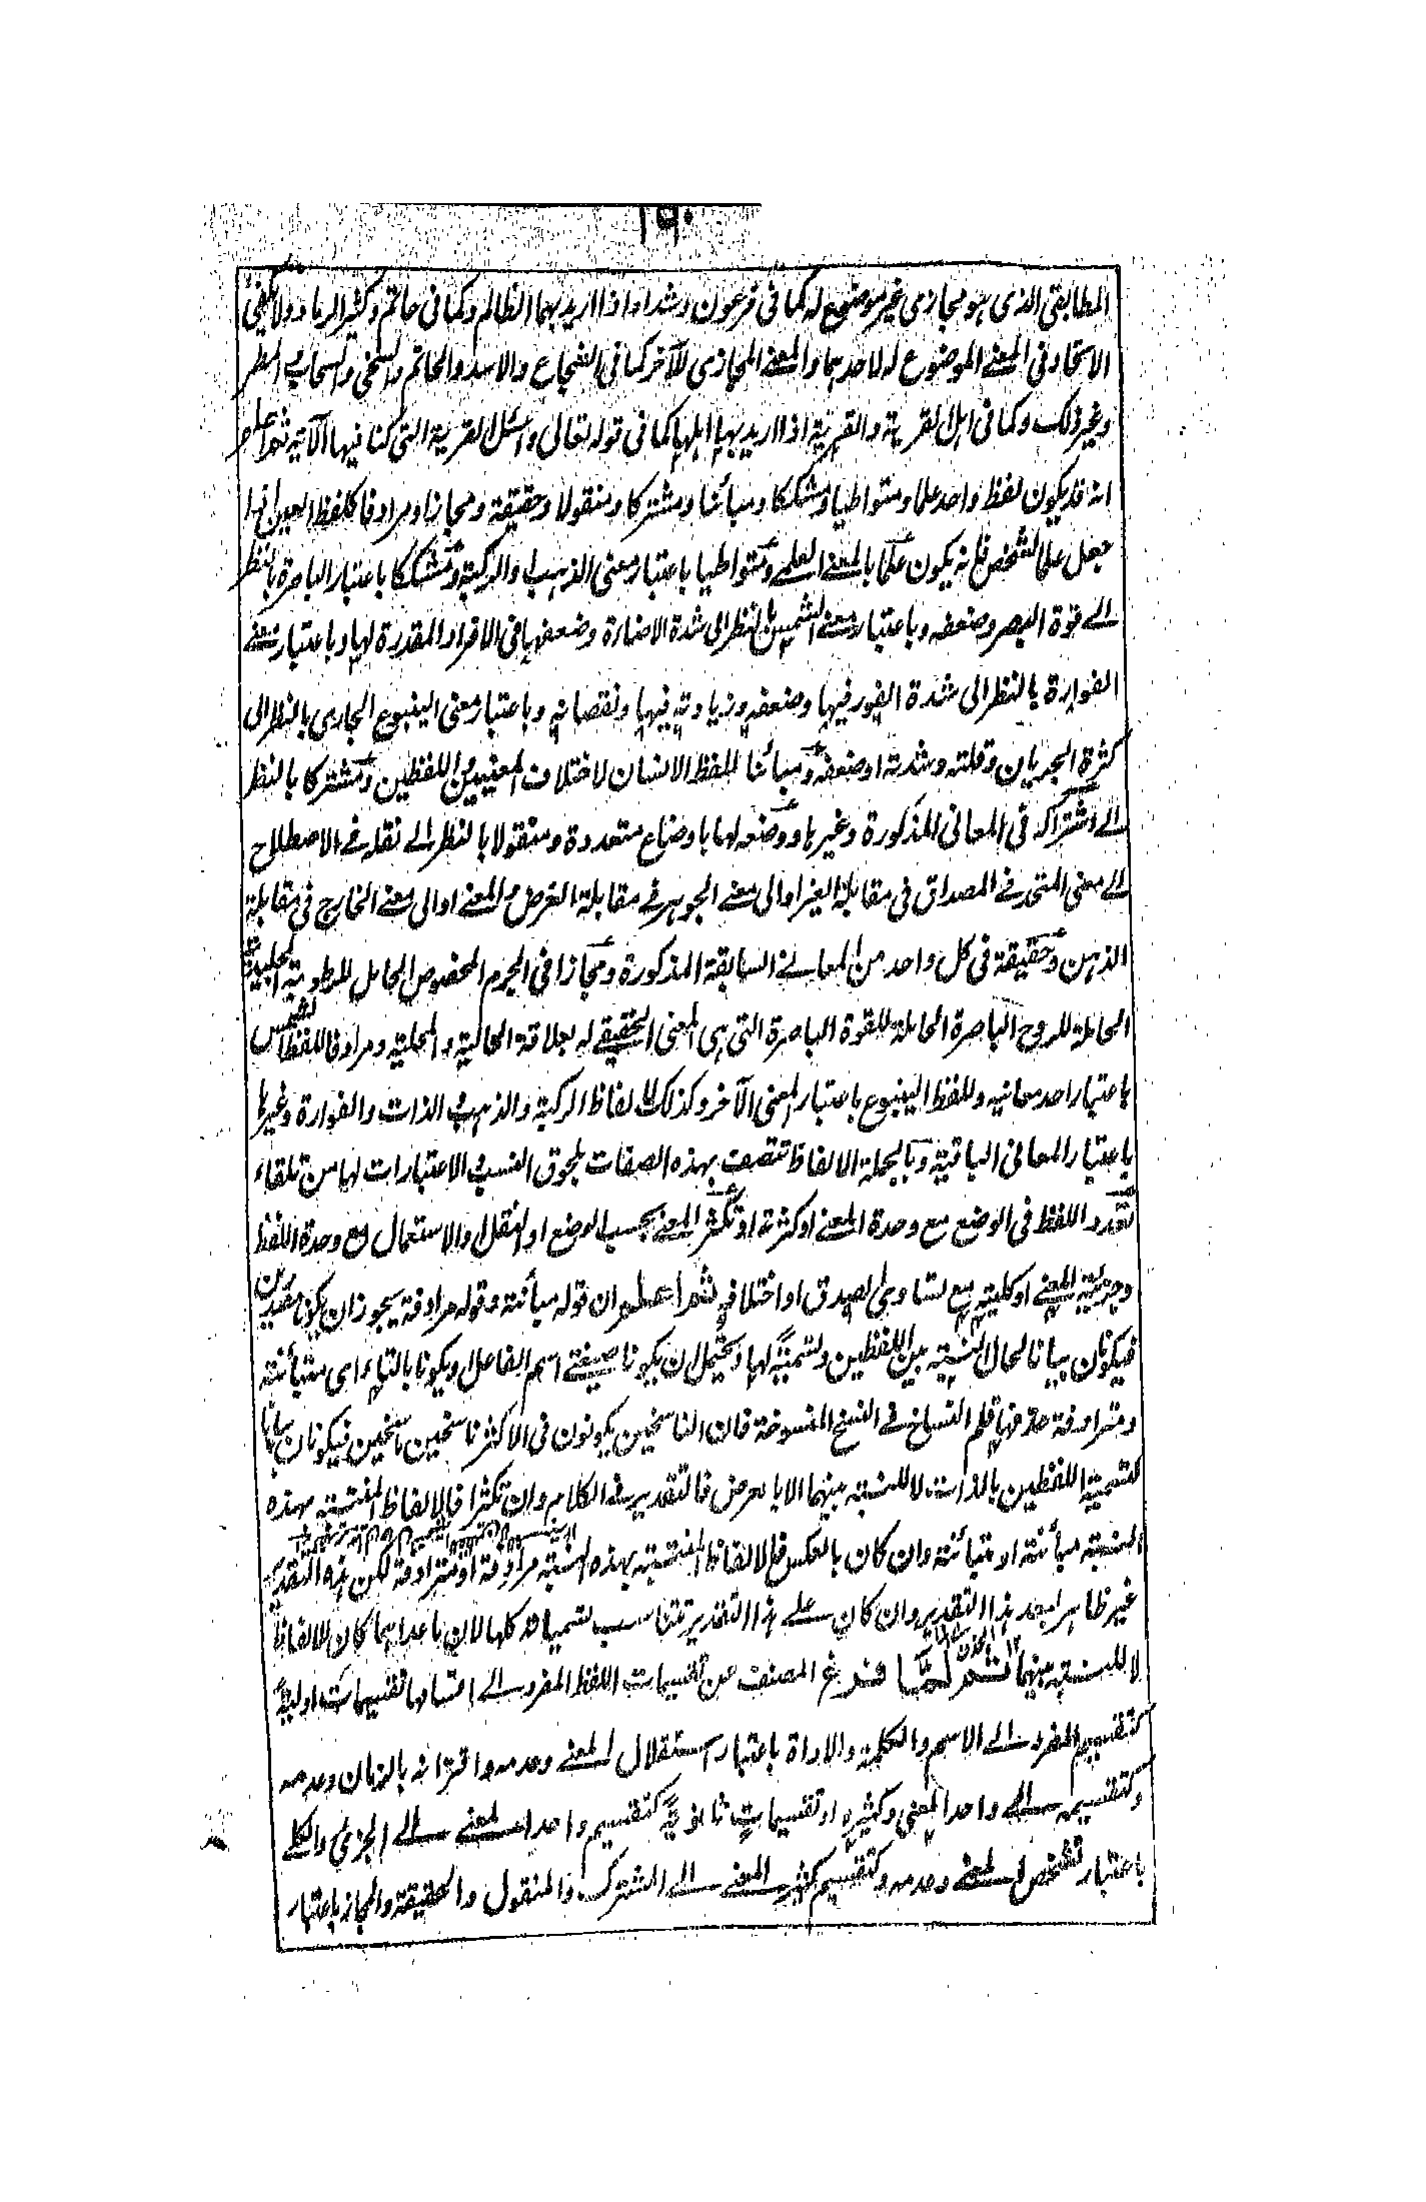 ١٩٠
المطابقى الذى هو مجازى غير موضوع له كما فى فرعون وشداد اذا اريد بهما الظالم وكما فى حاتم وكثير الرماد ولا يكفى
الاتحاد فى المعنى الموضوع له لاحدهما والمعنى المجازى للآخر كما فى الشجاع والاسد والحاتم والسخى والسحاب المطر
وغير ذلك وكما فى اهل القرية والقرية اذا اريد بها اهلها كما فى قوله تعالى واسئل القرية التى كنا فيها الآية ثم اعلم
انه قد يكون لفظ واحد علما ومتواطيا ومشككا ومبائنا ومشتركا ومنقولا وحقيقة ومجازا ومرادفا كلفظ العين اذا
جعل علما لشخص فانه يكون علما بالمعنى العلمى ومتواطيا باعتبار معنى الذهب والركية ومشككا باعتبار الباصرة بالنظر
الى قوة البصر وضعفه وباعتبار معنى الشمس بالنظر الى شدة الاضاءة وضعفها فى الافراد المقدرة لها وباعتبار معنى
الفوارة بالنظر الى شدة الفور فيها وضعفه وزيادته فيها ونقصانه وباعتبار معنى الينبوع الجارى بالنظر الى
كثرة الجريان وقلته وشدته او ضعفه ومبائنا للفظ الانسان لاختلاف المعنيين من اللفظين ومشتركا بالنظر
الى اشتراكه فى المعانى المذكورة وغيرها ووضعه لها باوضاع متعددة ومنقولا بالنظر الى نقله فى الاصطلاح
الى معنى المتحد فى المصداق فى مقابلة الغير او الى معنى الجوهر فى مقابلة العرض والمعنى او الى معنى الخارج فى مقابلة
الذهن وحقيقة فى كل واحد من المعانى السابقة المذكورة ومجازا فى الجرم المخصوص الحامل للرطوبة الجليدية
الحاملة للروح الباصرة الحاملة للقوة الباصرة التى هى المعنى الحقيقى له بعلاقة الحالية والمحلية ومرادفا للفظ الشمس
باعتبار احد معانيه وللفظ الينبوع باعتبار المعنى الآخر وكذلك للالفاظ الركية والذهب والذات والفوارة وغيرها
باعتبار المعانى الباقية وبالجملة الالفاظ تتصف بهذه الصفات بلحوق النسب والاعتبارات لها من تلقاء
تعدد اللفظ فى الوضع مع وحدة المعنى او كثرته او تكثر المعنى بحسب الوضع او النقل والاستعمال مع وحدة اللفظ
وجزئية المعنى او كليته مع تساوى الصدق او اختلافه ثم اعلم ان قوله مبائنة وقوله مرادفة يجوز ان يكونا مصدرين
فيكونان بيانا لحال النسبة بين اللفظين وتسمية لها ويحتمل ان يكونا صيغتى اسم الفاعل ويكونا بالتاء اى متبائنة
ومترادفة حذفها قلم النساخ فى النسخ المنسوخة فان الناسخين يكونون فى الاكثر ناسخين ماسخين فيكونان بيانا
لتسمية اللفظين بالذات لا للنسبة بينهما الا بالعرض فالتقدير فى الكلام وان تكثرا فالالفاظ المنتسبة بهذه
النسبة مبائنة او متبائنة وان كان بالعكس فالالفاظ المنتسبة بهذه النسبة مرادفة او مترادفة لكن هذا التقدير
غير ظاهر بعد هذا التقدير وان كان على هذا التقدير تتناسب تسمياته كلها لان ما عداهما كان للالفاظ
لا للنسبة بينهما ثم لما فرغ المصنف عن تقسيمات اللفظ المفرد الى اقسامها تقسيمات اولية
كتقسيم المفرد الى الاسم والكلمة والاداة باعتبار استقلال المعنى وعدمه واقترانه بالزمان وعدمه
وكتقسيمه الى واحد المعنى وكثيره او تقسيمات ثانوية كتقسيم واحد المعنى الى الجزئى والكلى
باعتبار تشخص المعنى وعدمه وكتقسيم كثير المعنى الى المشترك والمنقول والحقيقة والمجاز باعتبار